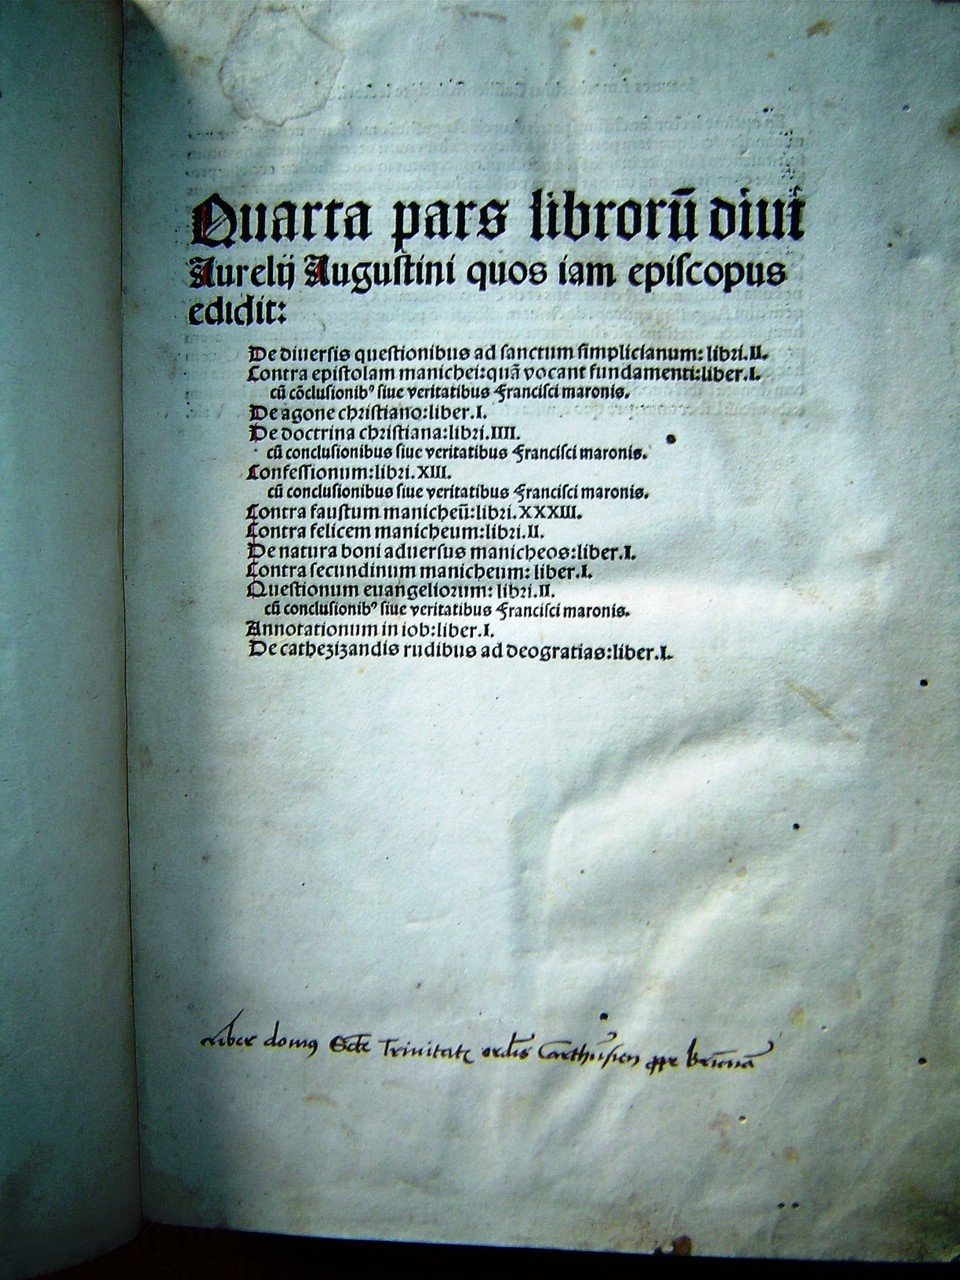 Quarta pars librorū diui
Aurelij Augustini quos iam episcopus
edidit:
De diuersis questionibus ad sanctum simplicianum: libri.II.
Contra epistolam manichei:quā vocant fundamenti:liber.I.
cū cōclusionibꝰ siue veritatibus Francisci maronis.
De agone christiano:liber.I.
De doctrina christiana:libri.IIII.
cū conclusionibus siue veritatibus Francisci maronis.
Confessionum:libri.XIII.
cū conclusionibus siue veritatibus Francisci maronis.
Contra faustum manicheū:libri.XXXIII.
Contra felicem manicheum:libri.II.
De natura boni aduersus manicheos:liber.I.
Contra secundinum manicheum: liber.I.
Questionum euangeliorum: libri.II.
cū conclusionibꝰ siue veritatibus Francisci maronis.
Annotationum in iob:liber.I.
De cathezizandis rudibus ad deogratias:liber.I.
Liber domꝰ Scte Trinitatꝭ ordīs Carthusien ꝓpe Brunā